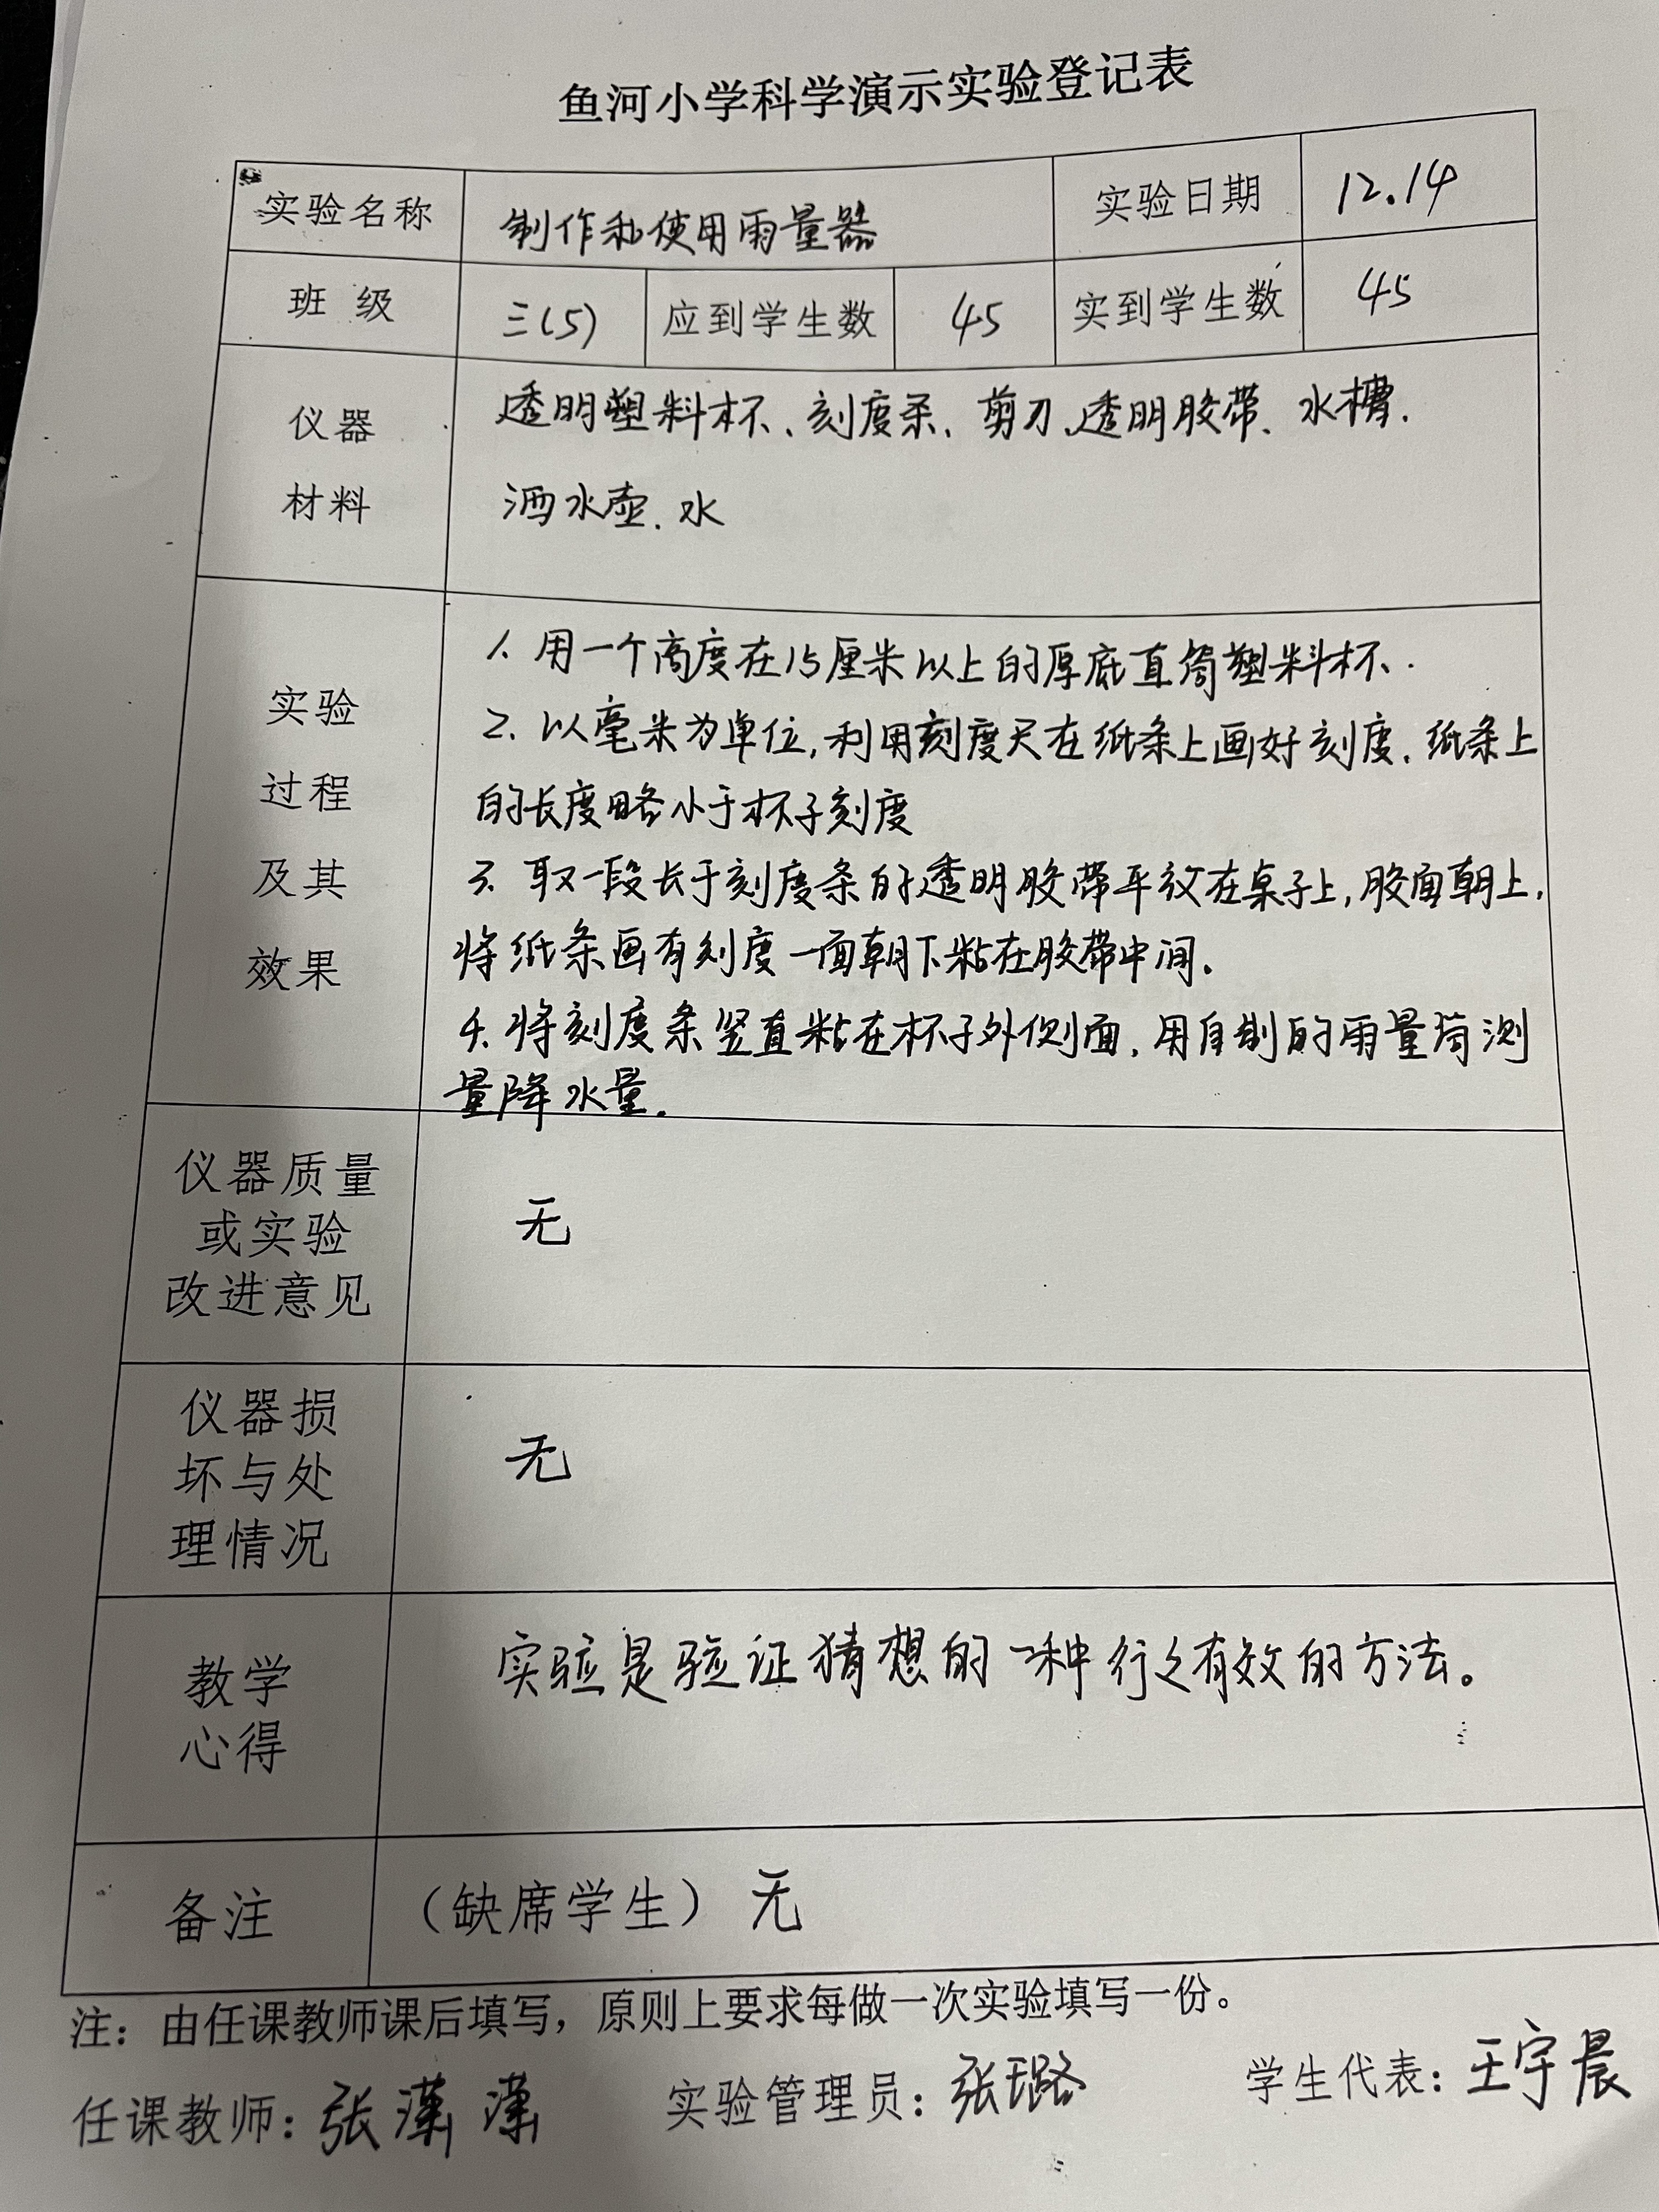 鱼河小学科学演示实验登记表
实验名称 制作和使用雨量器 实验日期 12.14
班 级 三(5) 应到学生数 45 实到学生数 45
仪器
材料
透明塑料杯、刻度条、剪刀、透明胶带、水槽.
洒水壶.水
实验
过程
及其
效果
1. 用一个高度在15厘米以上的厚底直筒塑料杯.
2. 以毫米为单位,利用刻度尺在纸条上画好刻度.纸条上
的长度略小于杯子刻度
3. 取一段长于刻度条的透明胶带平放在桌子上,胶面朝上,
将纸条画有刻度一面朝下粘在胶带中间.
4. 将刻度条竖直粘在杯子外侧面,用自制的雨量筒测
量降水量.
仪器质量
或实验
改进意见
无
仪器损
坏与处
理情况
无
教学
心得
实验是验证猜想的一种行之有效的方法。
备注 （缺席学生） 无
注：由任课教师课后填写，原则上要求每做一次实验填写一份。
任课教师：张 实验管理员：张璐 学生代表：王宇晨